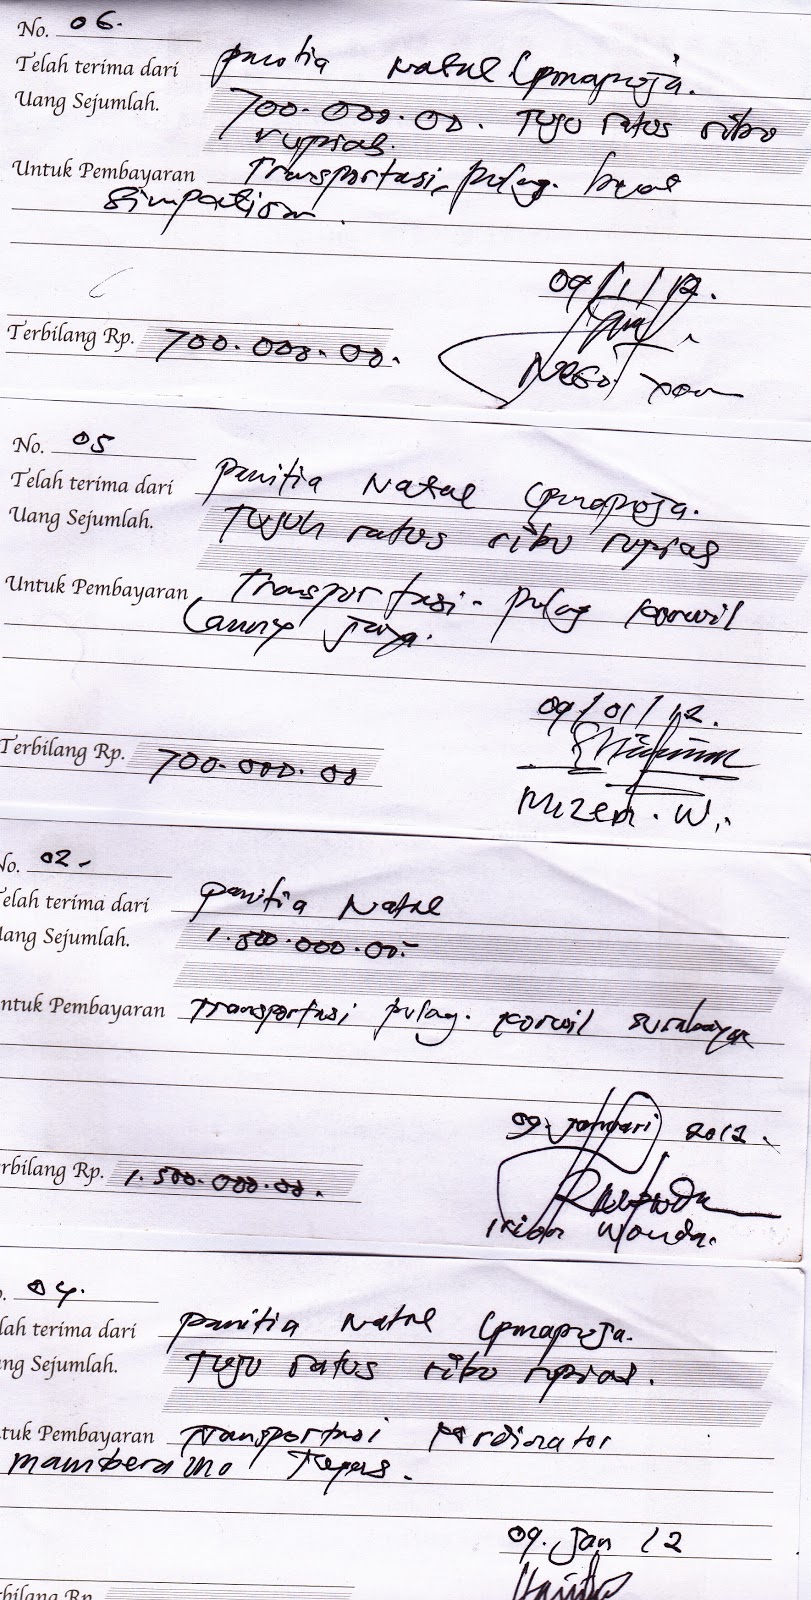 No. 06.
Telah terima dari panitia Natal
Uang Sejumlah. 700.000.00. Tuju ratus ribu
rupias.
Untuk Pembayaran Transportasi, pulag.
simpatisan.
09/1/12.
Terbilang Rp. 700.000.00.
No. 05
Telah terima dari panitia Natal
Uang Sejumlah. Tujuh ratus ribu rupias
Untuk Pembayaran Transportasi - pulag korwil
Lanny Jaya.
09/01/12.
Terbilang Rp. 700.000.00
Mizen. W.
No. 02.
Telah terima dari panitia Natal
Uang Sejumlah. 1.500.000.00.-
Untuk Pembayaran Transportasi pulag. korwil surabaya
09. Januari 2012.
Terbilang Rp. 1.500.000.00.
Wonda.
04.
lah terima dari panitia Natal
ng Sejumlah. Tuju ratus ribu rupias.
tuk Pembayaran Transportasi kordinator
mamberamo
09. Jan 12
rbilang Rp.